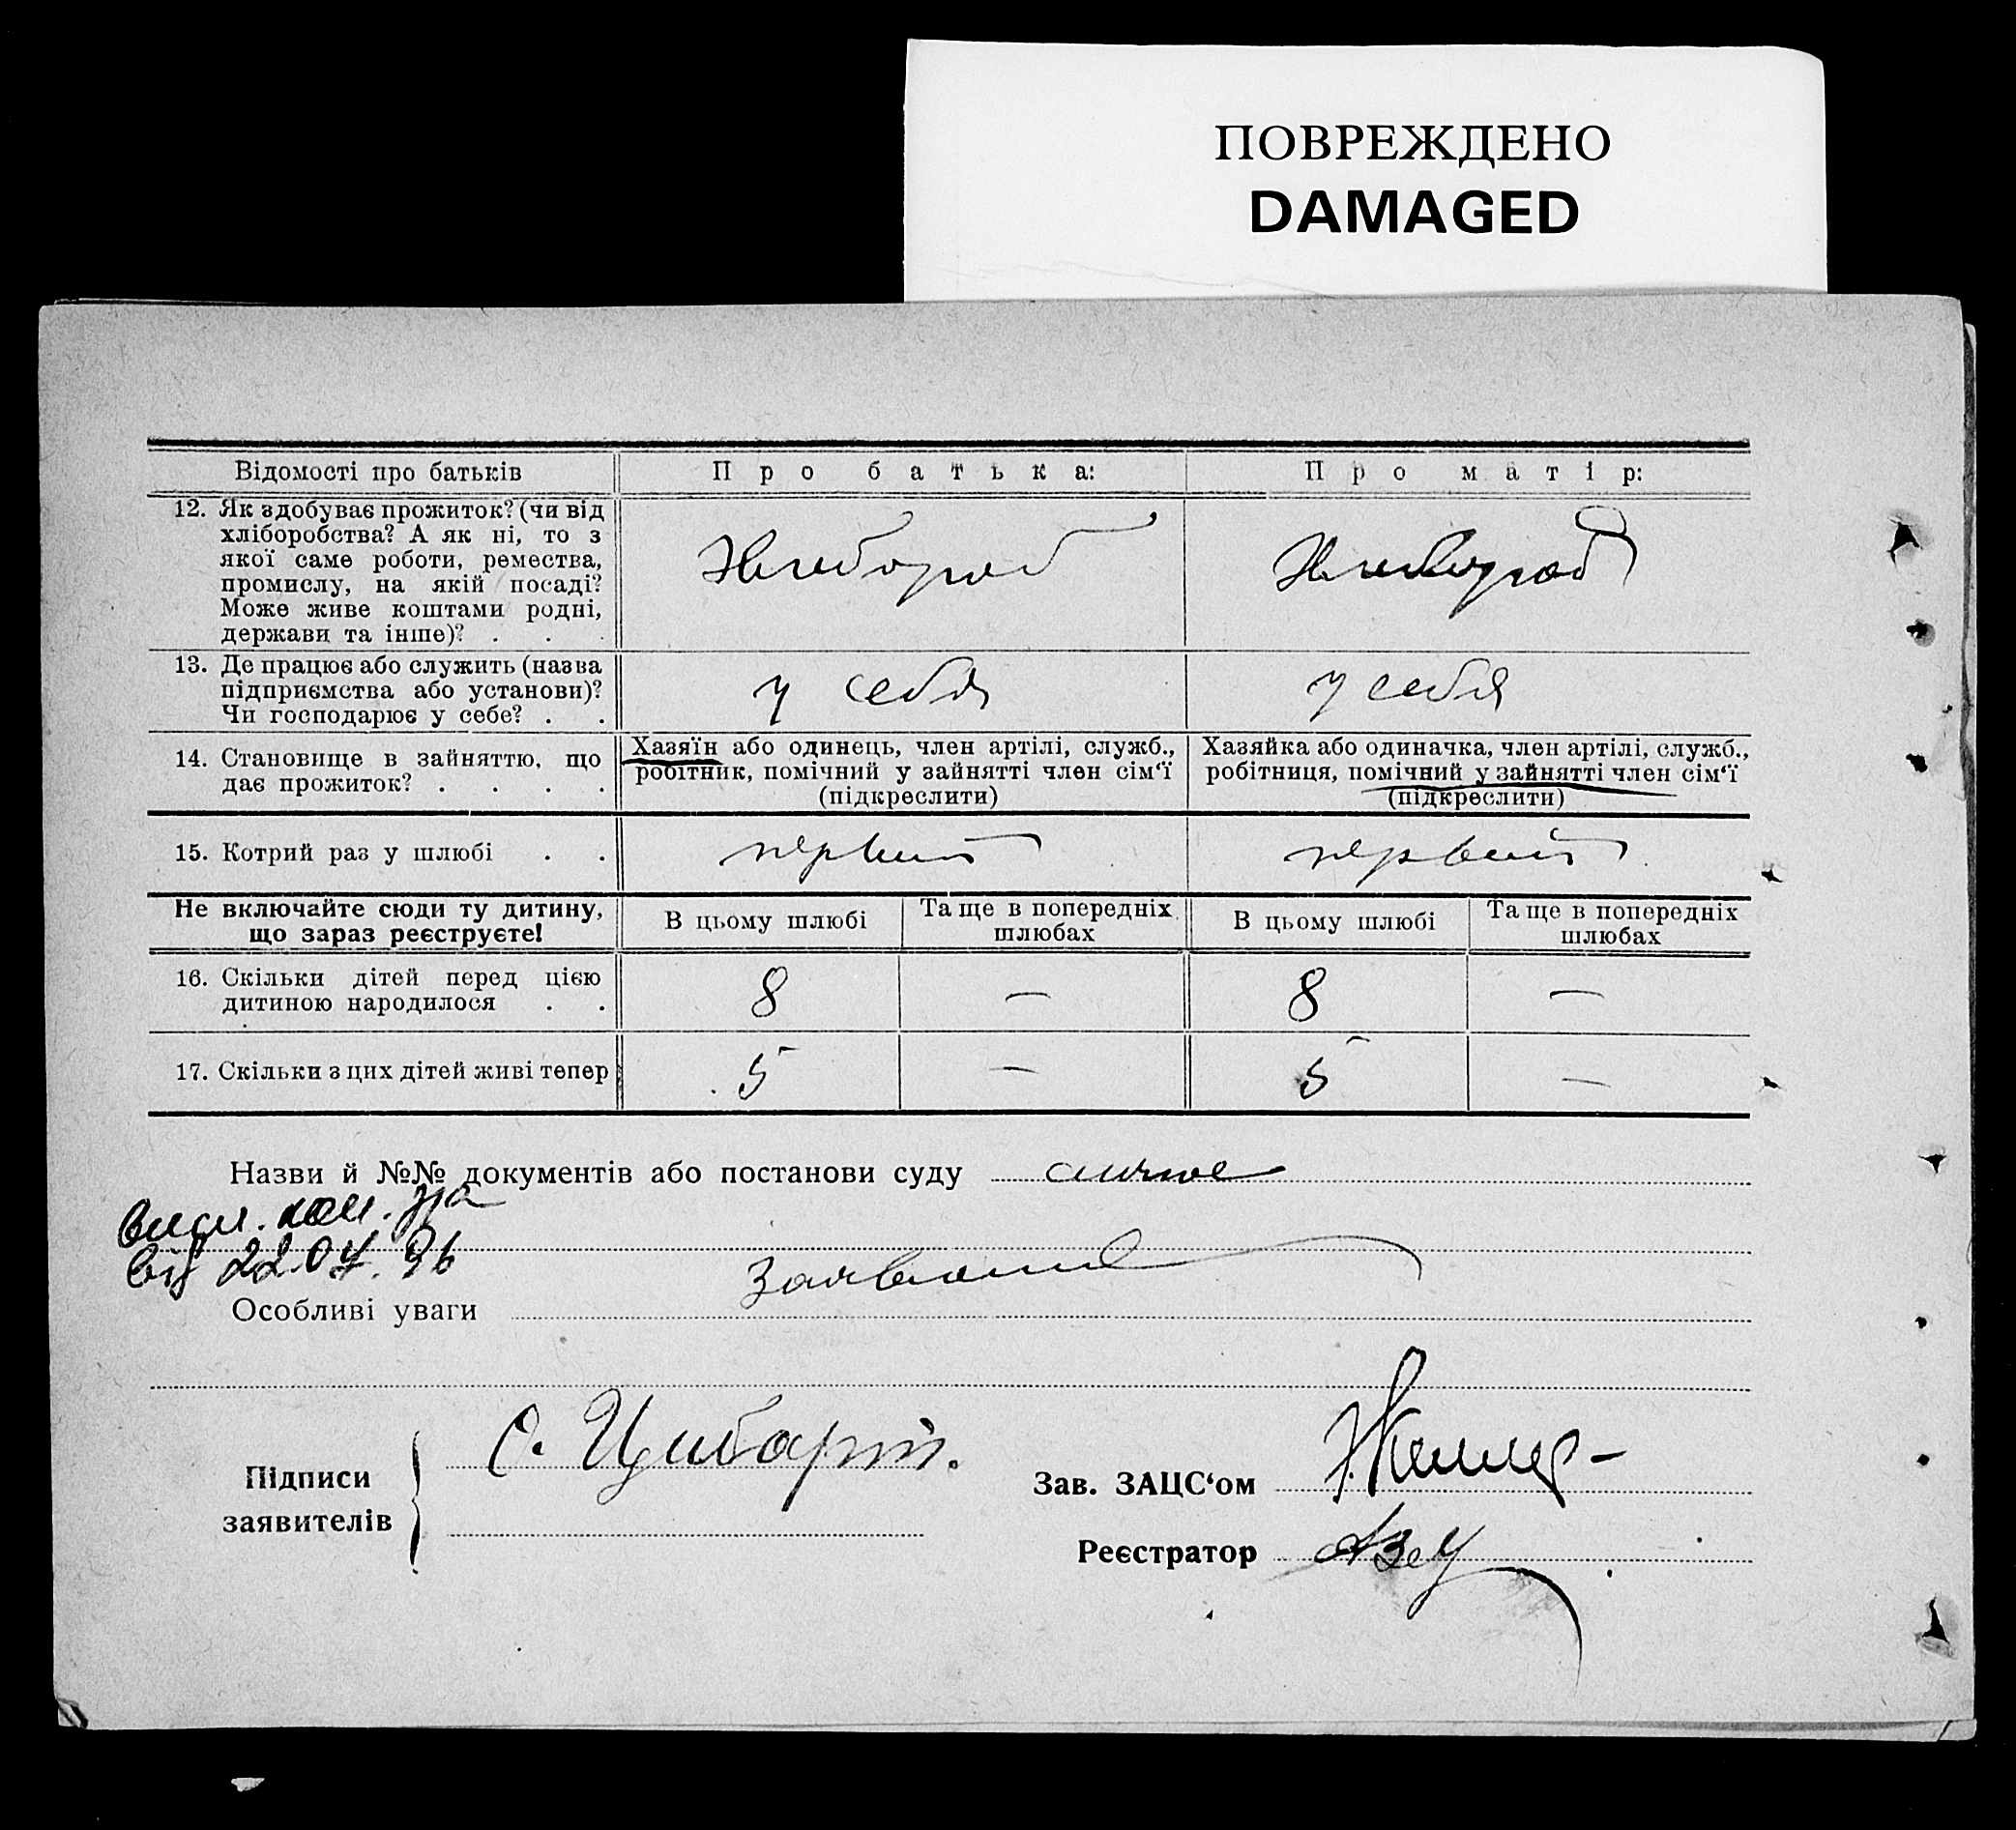 ПОВРЕЖДЕНО
DAMAGED
Відомості про батьків
Про батька:
Про матір:
12. Як здобуває прожиток? (чи від
хліборобства? А як ні, то з
якої саме роботи, ремества,
промислу, на якій посаді?
Може живе коштами родні,
держави та інше)? . . .
Хлебороб
Хлебороб
13. Де працює або служить (назва
підприємства або установи)?
Чи господарює у себе? . .
у себя
у себя
14. Становище в зайняттю, що
дає прожиток? . . . .
Хазяїн або одинець, член артілі, служб.,
робітник, помічний у зайнятті член сім‘ї
(підкреслити)
Хазяйка або одиначка, член артілі, служб.,
робітниця, помічний у зайнятті член сім‘ї
(підкреслити)
15. Котрий раз у шлюбі . .
первий
первий
Не включайте сюди ту дитину,
що зараз реєструєте!
В цьому шлюбі
Та ще в попередніх
шлюбах
В цьому шлюбі
Та ще в попередніх
шлюбах
16. Скільки дітей перед цією
дитиною народилося . .
8
—
8
—
17. Скільки з цих дітей живі тепер
5
—
5
—
Назви й №№ документів або постанови суду
від 22.04.96
Особливі уваги
Підписи
заявителів
С. Цибарт.
Зав. ЗАЦС‘ом
Реєстратор